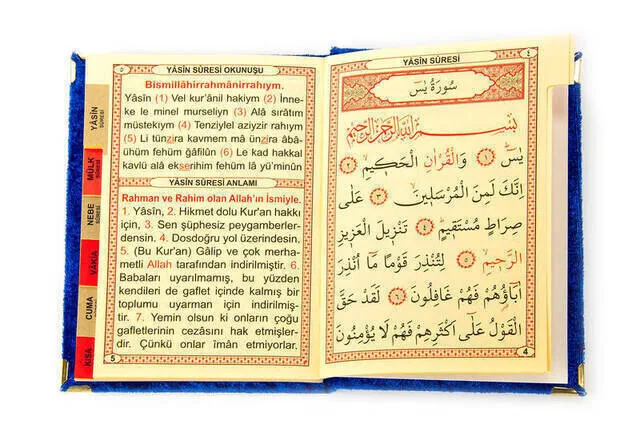 YÂSİN SÛRESİ OKUNUŞU
٥
Bismillâhirrahmânirrahıym.
Yâsîn (1) Vel kur'ânil hakiym (2) İnne-
ke le minel murseliyn (3) Alâ sırâtım
müstekıym (4) Tenziylel aziyzir rahıym
(5) Li tünzira kavmem mâ ünzira âbâ-
ühüm fehüm ğâfilûn (6) Le kad hakkal
kavlü alâ ekserihim fehüm lâ yü'minûn
YÂSİN SÛRESİ ANLAMI
Rahman ve Rahim olan Allah'ın İsmiyle.
1. Yâsîn, 2. Hikmet dolu Kur'an hakkı
için, 3. Sen şüphesiz peygamberler-
densin. 4. Dosdoğru yol üzerindesin.
5. (Bu Kur'an) Gâlip ve çok merha-
metli Allah tarafından indirilmiştir. 6.
Babaları uyarılmamış, bu yüzden
kendileri de gaflet içinde kalmış bir
toplumu uyarman için indirilmiş-
tir. 7. Yemin olsun ki onların çoğu
gafletlerinin cezasını hak etmişler-
dir. Çünkü onlar îmân etmiyorlar.
5
YÂSİN SÛRESİ
MÜLK SÛRESİ
NEBE SÛRESİ
VÂKIA
CUMA
KISA
YÂSİN SÛRESİ
٤
سُورَةُ يٰسٓ
بِسْمِ اللّٰهِ الرَّحْمٰنِ الرَّحِيمِ
يٰسٓ ﴿١﴾ وَالْقُرْاٰنِ الْحَكٖيمِ ﴿٢﴾
اِنَّكَ لَمِنَ الْمُرْسَلٖينَ ﴿٣﴾ عَلٰى
صِرَاطٍ مُسْتَقٖيمٍ ﴿٤﴾ تَنْزٖيلَ الْعَزٖيزِ
الرَّحٖيمِ ﴿٥﴾ لِتُنْذِرَ قَوْمًا مَٓا اُنْذِرَ
اٰبَٓاؤُهُمْ فَهُمْ غَافِلُونَ ﴿٦﴾ لَقَدْ حَقَّ
الْقَوْلُ عَلٰٓى اَكْثَرِهِمْ فَهُمْ لَا يُؤْمِنُونَ
4